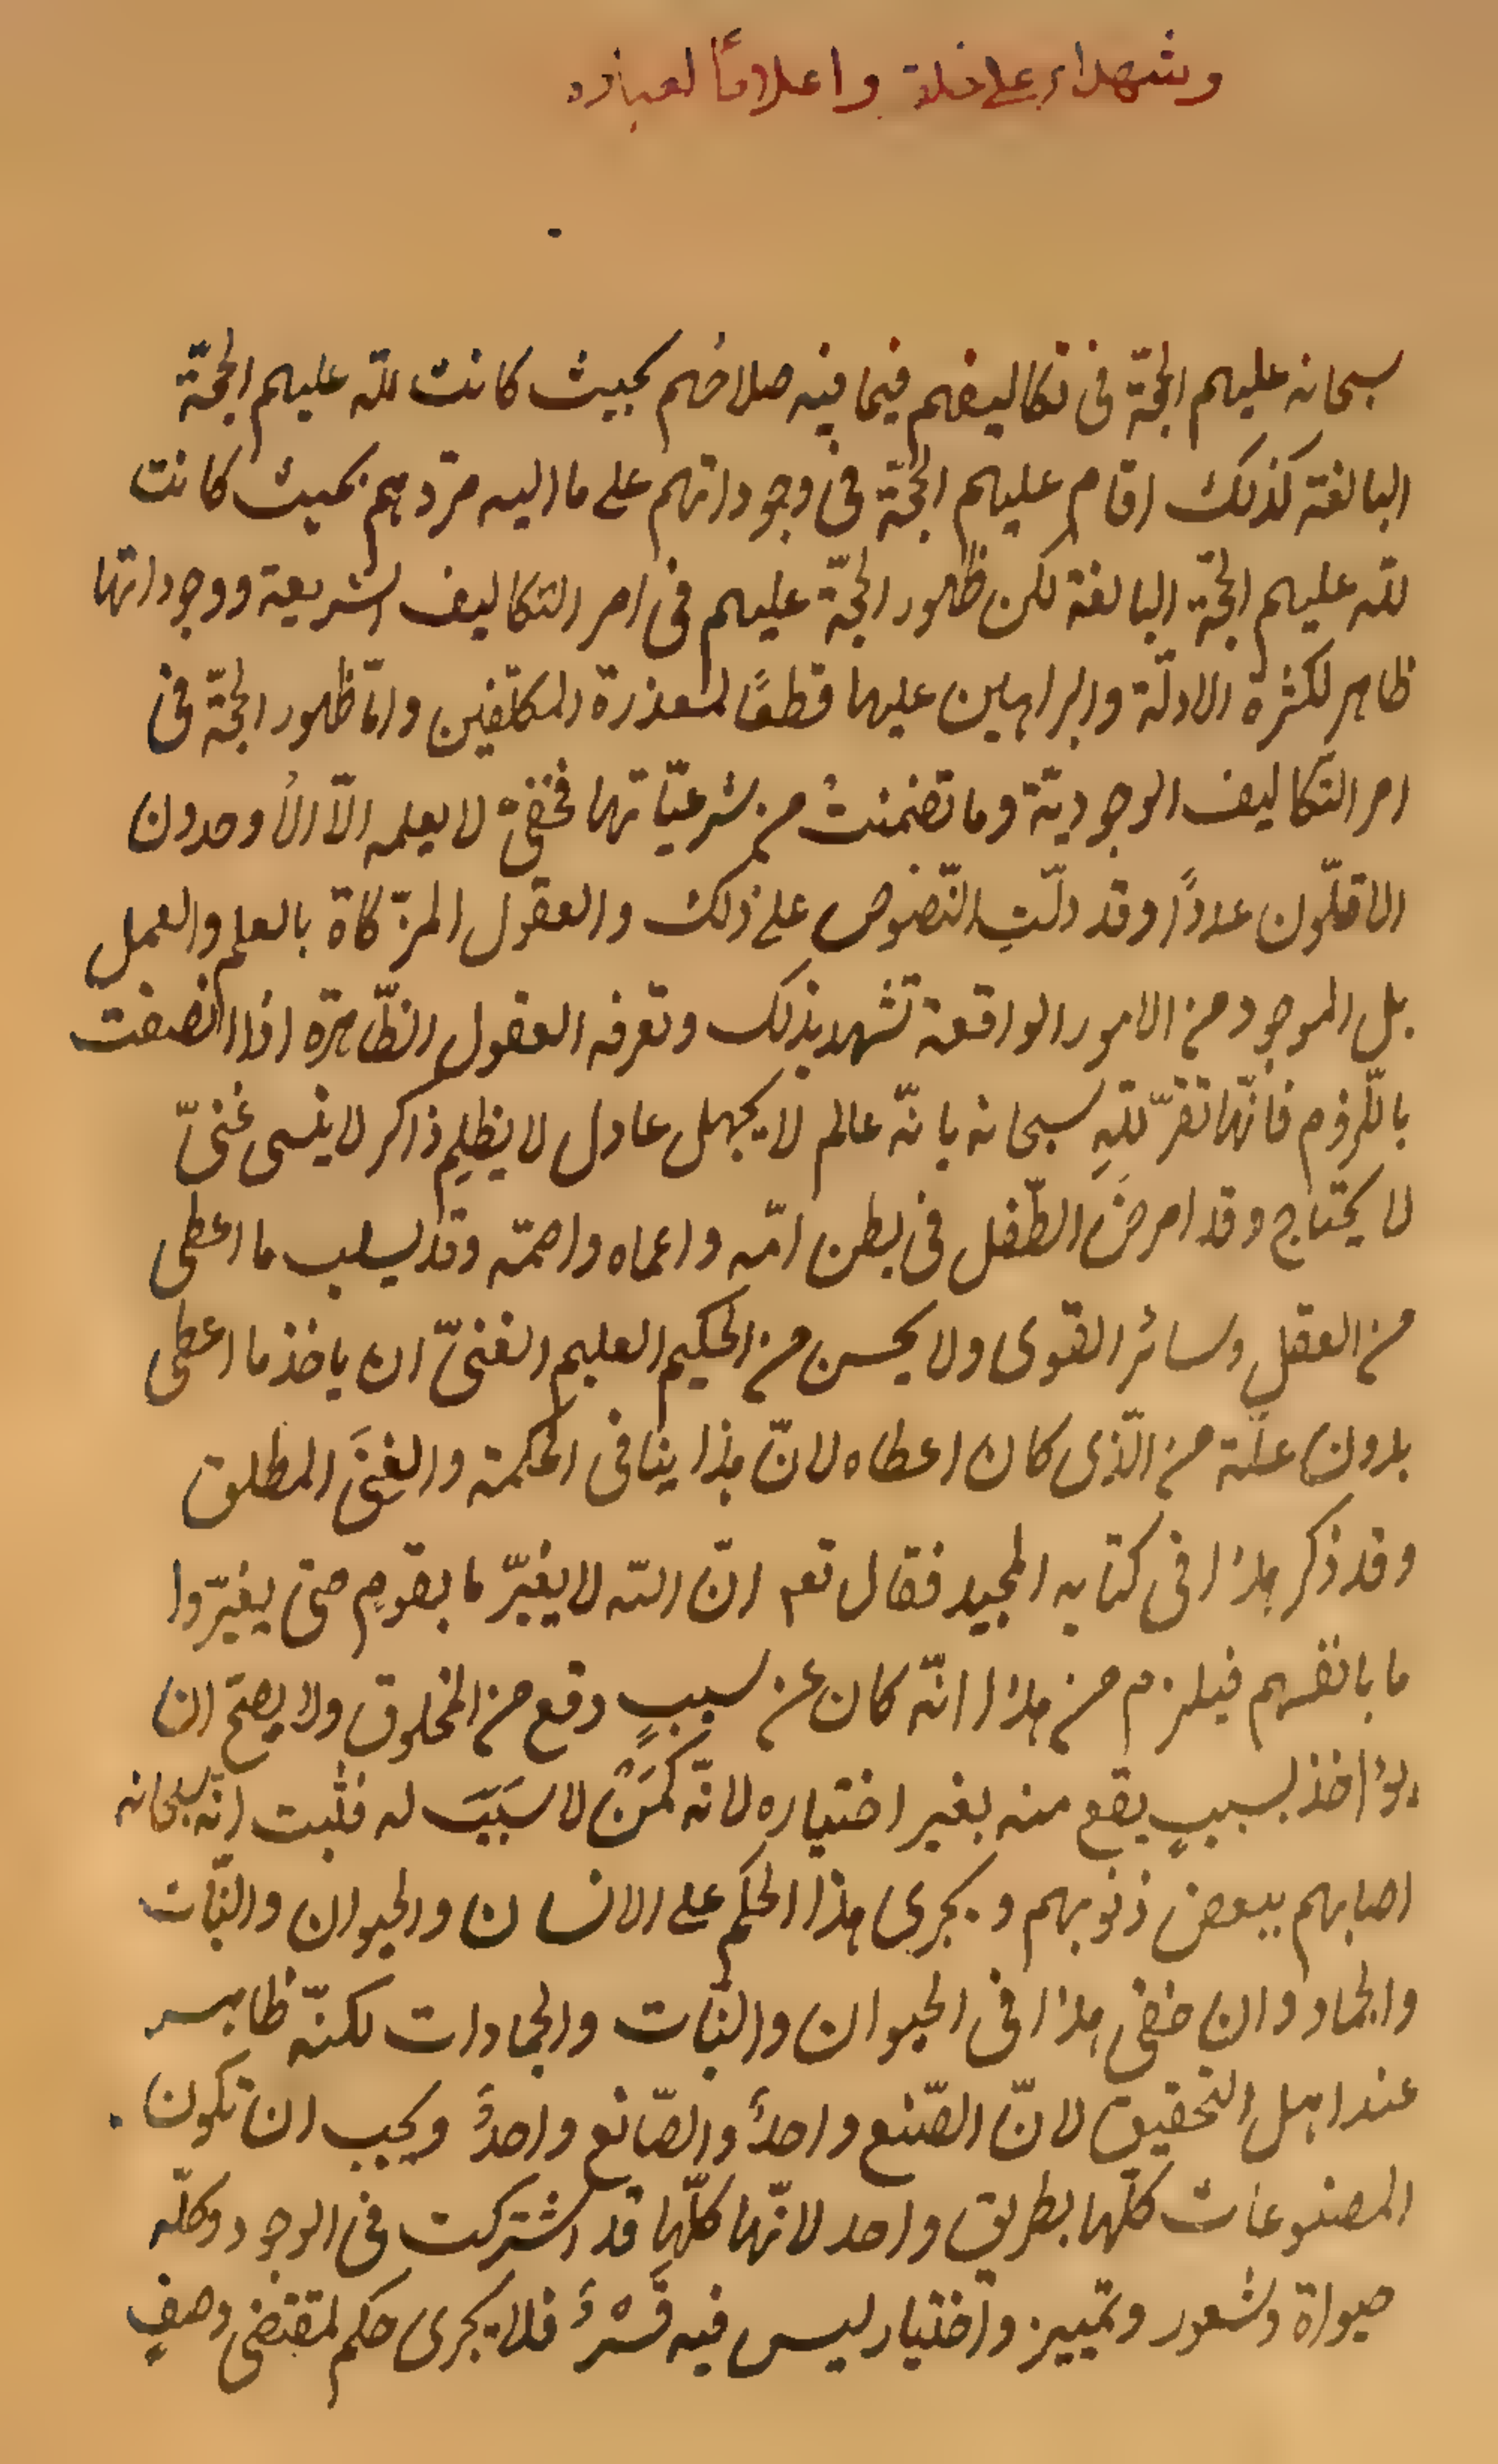 وشهداء على خلقه واعلامًا لعباده
سبحانه عليهم الحجّة فى تكاليفهم فيما فيه صلاحهم بحيث كانت للّه عليهم الحجّة
البالغة كذلك اقام عليهم الحجّة فى وجوداتهم على ما اليه مردّهم بحيث كانت
للّه عليهم الحجّة البالغة لكن ظهور الحجّة عليهم فى امر التكاليف الشريعة ووجوداتها
ظاهر لكثرة الادلّة والبراهين عليها قطعًا لمعذرة المكلّفين وامّا ظهور الحجّة فى
امر التّكاليف الوجوديّة وما تضمنت من شرعيّاتها فخفىّ لا يعلمه الّا الأوحدون
الاقلّون عددًا وقد دلّت النّصوص على ذلك والعقول المزّكاة بالعلم والعمل
بل الموجود من الامور الواقعة تشهد بذلك وتعرفه العقول الطّاهرة اذا انصفت
باللّزوم فانّها تقرّ للّهِ سبحانه بانّه عالم لا يجهل عادل لا يظلم ذاكر لا ينسى غنىّ
لا يحتاج وقد امرضَ الطّفل فى بطن امّه واعماه واصمّه وقد يسلب ما اعطى
من العقل وسائر القوى ولا يحسن من الحكيم العليم الغنىّ ان ياخذ ما اعطى
بدون علّة من الّذى كان اعطاه لانّ هذا ينافى الحكمة والغِنَى المطلق
وقد ذكر هذا فى كتابه المجيد فقال تعه انّ اللّه لا يغيّر ما بقومٍ حتى يغيّروا
ما بانفسهم فيلزم من هذا انّه كان عن سببٍ وقع من المخلوق ولا يصحّ ان
يؤاخذ بسببٍ يقع منه بغير اختياره لانّه كمَنْ لا سَبَبَ له فثبت انّه سبحانه
اصابهم ببعض ذنوبهم ويجرى هذا الحكم على الانسان والحيوان والنّبات
والجماد وان خفى هذا فى الحيوان والنّبات والجمادات لكنّه ظاهر
عند اهل التحقيق لانّ الصّنع واحدٌ والصّانع واحدٌ ويجب ان تكون
المصنوعات كلّها بطريق واحد لانّها كلّها قد اشتركت فى الوجود وكلّه
حيواة وشعور وتمييز واختيار ليس فيه قَسْرٌ فلا يجرى حكم لمقتضى وصفٍ